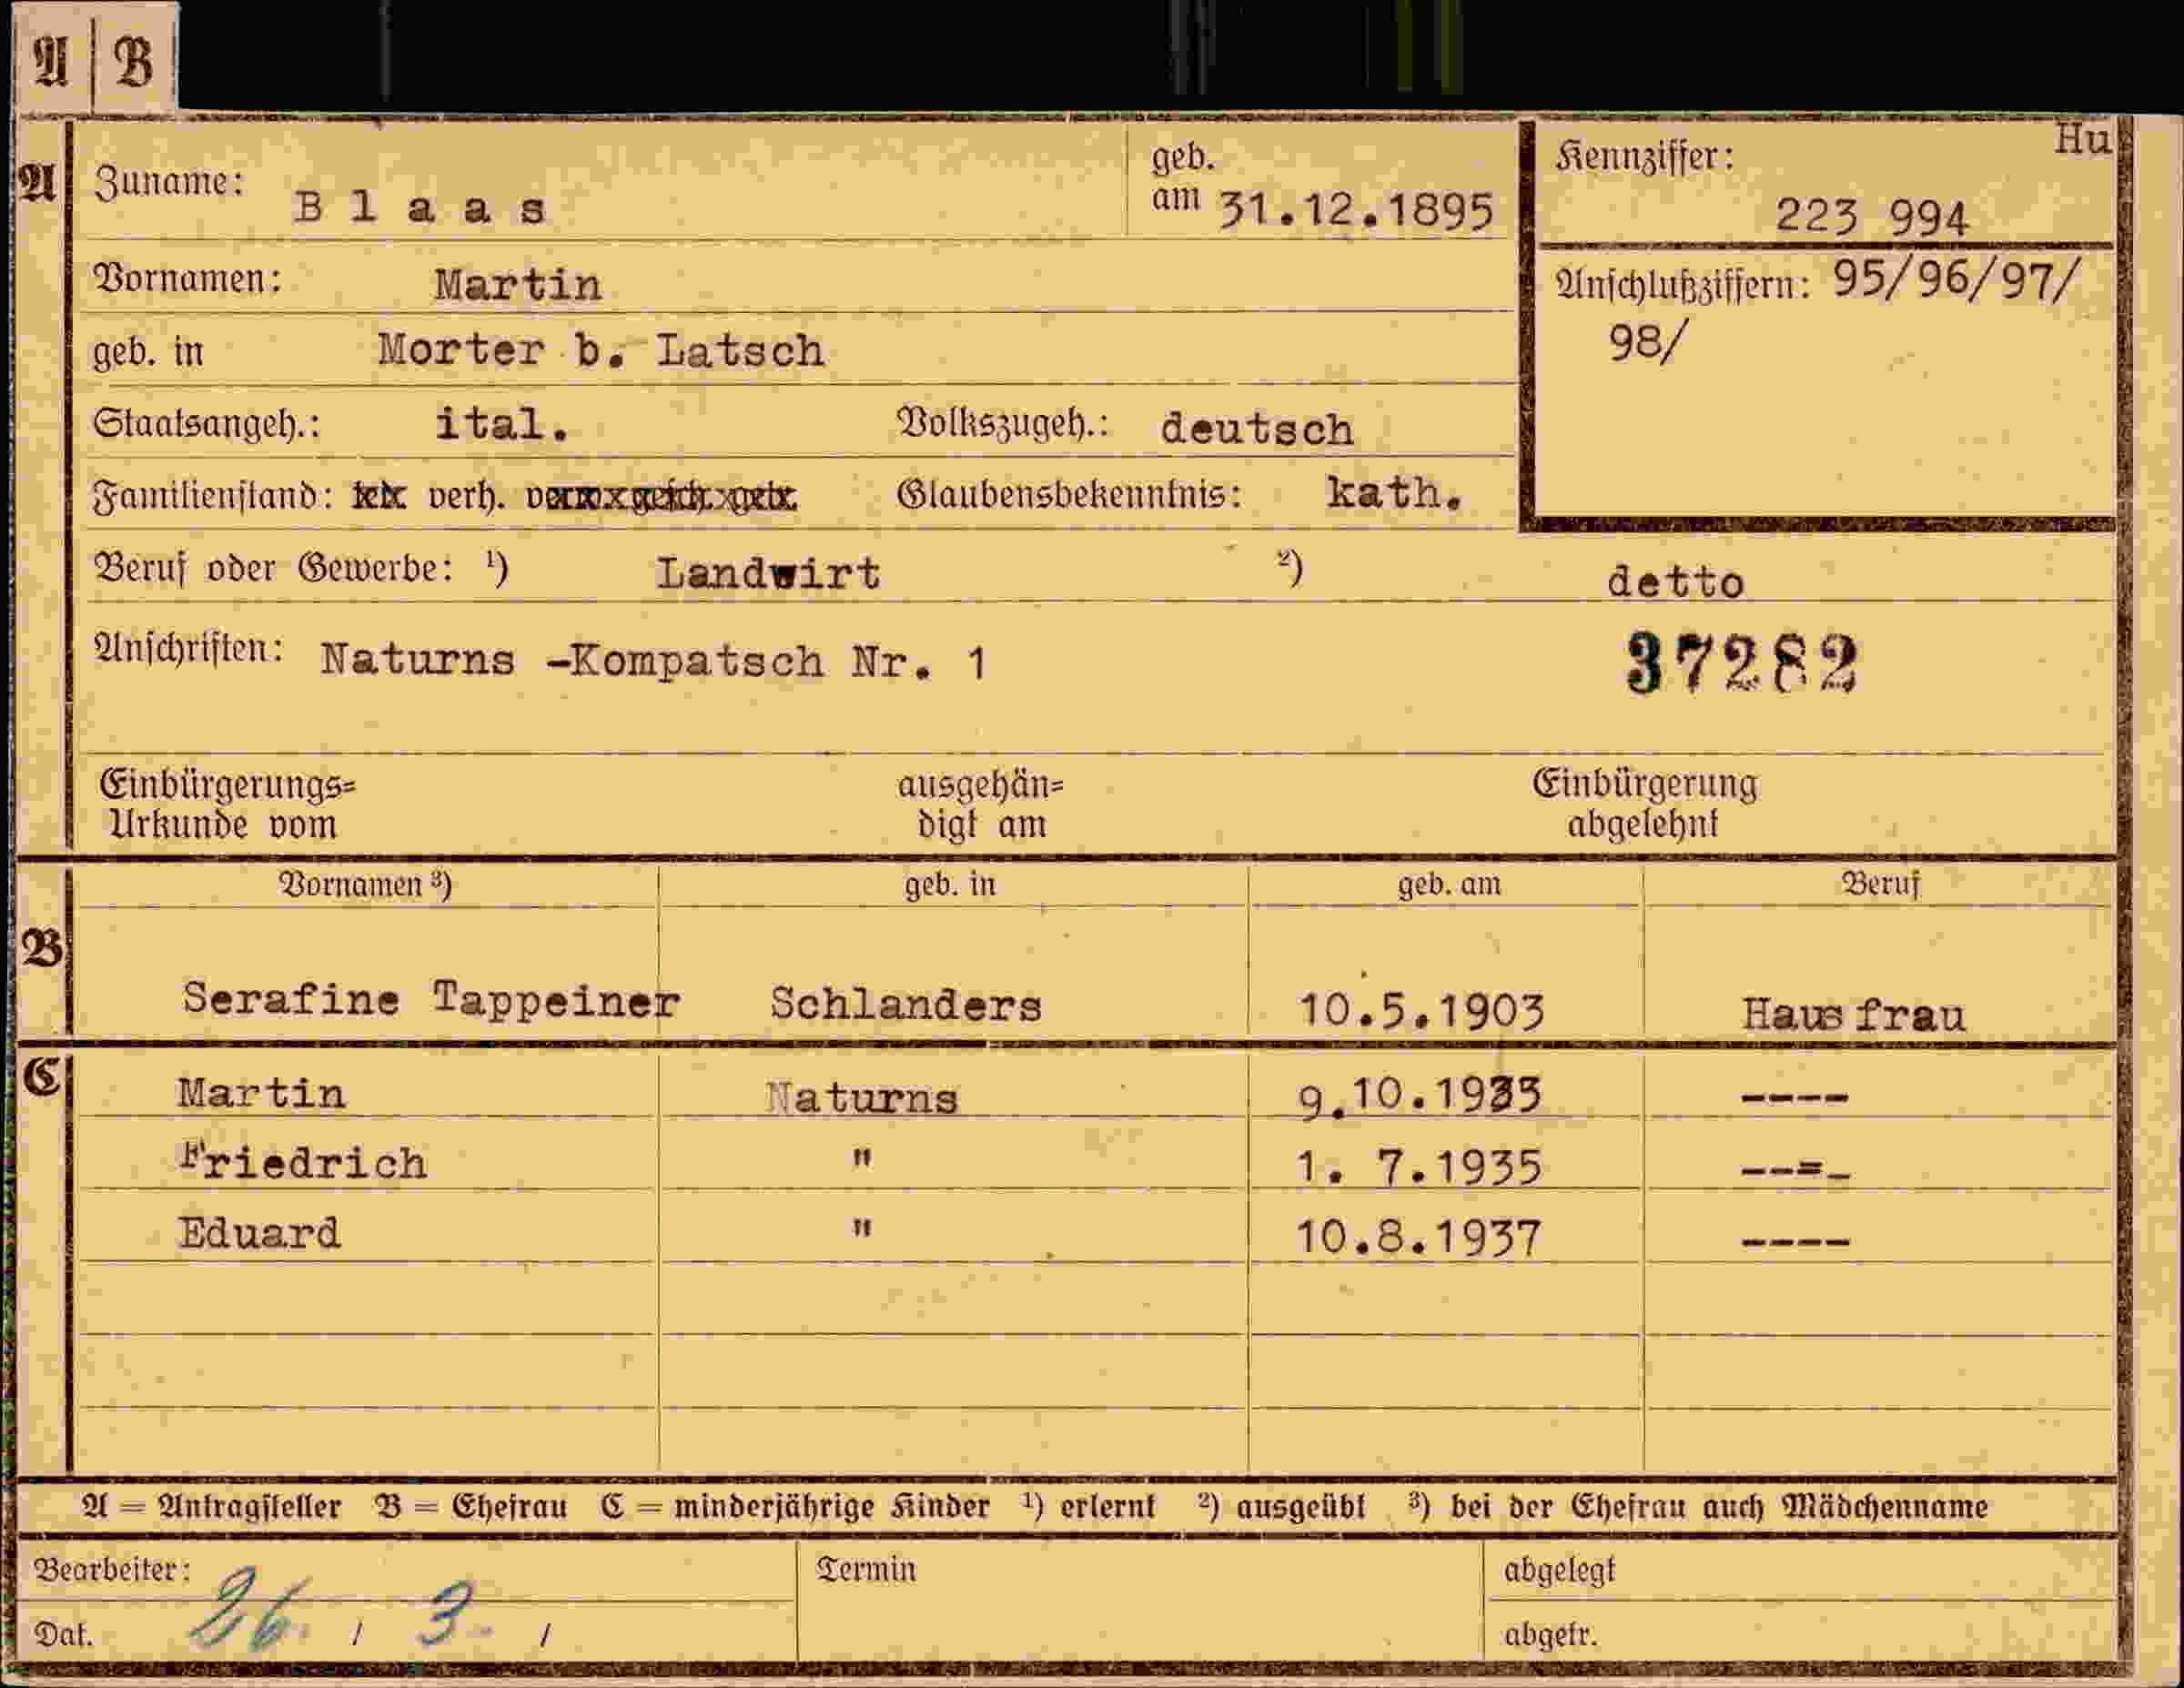 A B
Hu
A Zuname: Blaas geb. am 31.12.1895 Kennziffer: 223 994
Vornamen: Martin Anschlußziffern: 95/96/97/
98/
geb. in Morter b. Latsch
Staatsangeh.: ital. Volkszugeh.: deutsch
Familienstand: verh. Glaubensbekenntnis: kath.
Beruf oder Gewerbe: ¹) Landwirt ²) detto
Anschriften: Naturns -Kompatsch Nr. 1 37282
Einbürgerungs= ausgehän= Einbürgerung
Urkunde vom digt am abgelehnt
Vornamen ³) geb. in geb. am Beruf
B
Serafine Tappeiner Schlanders 10.5.1903 Hausfrau
C Martin Naturns 9.10.1933 ----
Friedrich " 1. 7.1935 --=-
Eduard " 10.8.1937 ----
A = Antragsteller B = Ehefrau C = minderjährige Kinder ¹) erlernt ²) ausgeübt ³) bei der Ehefrau auch Mädchenname
Bearbeiter: Termin abgelegt
Dat. 26. / 3. / abgetr.